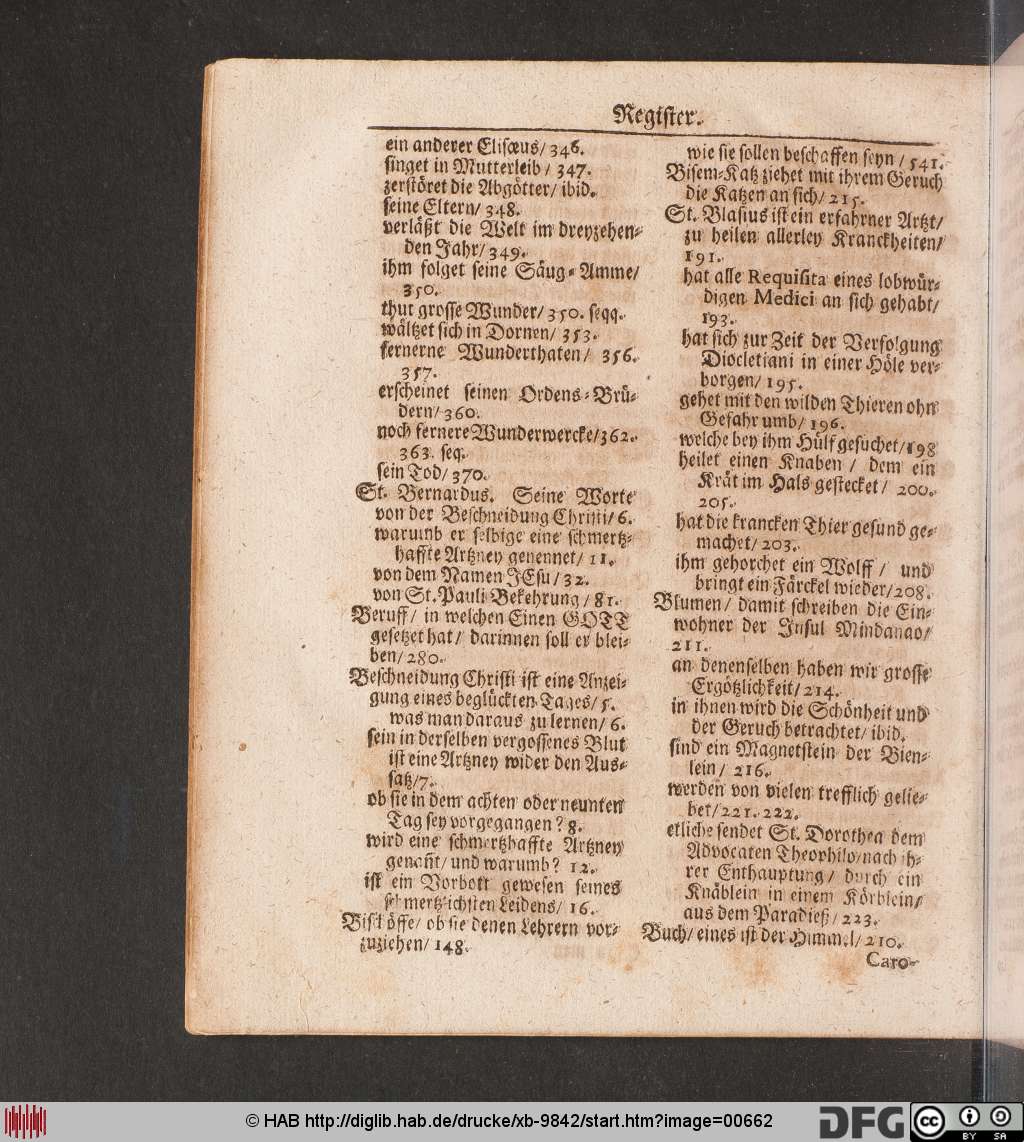 Register.
ein anderer Elisæus/ 346.
singet in Mutterleib/ 347.
zerstöret die Abgötter/ ibid.
seine Eltern/ 348.
verläßt die Welt im dreyzehen-
den Jahr/ 349.
ihm folget seine Säug-Amme/
350.
thut grosse Wunder/ 350. seqq.
wältzet sich in Dornen/ 353.
fernerne Wunderthaten/ 356.
357.
erscheinet seinen Ordens-Brü-
dern/ 360.
noch fernere Wunderwercke/362.
363. seq.
sein Tod/ 370.
St. Bernardus. Seine Worte
von der Beschneidung Christi/ 6.
warumb er selbige eine schmertz-
haffte Artzney genennet/ 11.
von dem Namen JEsu/ 32.
von St. Pauli Bekehrung/ 81.
Beruff/ in welchen Einen GOTT
gesetzet hat/ darinnen soll er blei-
ben/ 280.
Beschneidung Christi ist eine Anzei-
gung eines beglückten Tages/ 5.
was man daraus zu lernen/ 6.
sein in derselben vergossenes Blut
ist eine Artzney wider den Aus-
satz/7.
ob sie in dem achten oder neunten
Tag sey vorgegangen? 8.
wird eine schmertzhaffte Artzney
genañt/ und warumb? 12.
ist ein Vorbott gewesen seines
schmertzlichsten Leidens/ 16.
Bischöffe/ ob sie denen Lehrern vor-
zuziehen/ 148.
wie sie sollen beschaffen seyn/ 541.
Bisem-Katz ziehet mit ihrem Geruch
die Katzen an sich/ 215.
St. Blasius ist ein erfahrner Artzt/
zu heilen allerley Kranckheiten/
191.
hat alle Requisita eines lobwür-
digen Medici an sich gehabt/
193.
hat sich zur Zeit der Verfolgung
Diocletiani in einer Höle ver-
borgen/ 195.
gehet mit den wilden Thieren ohn
Gefahr umb/ 196.
welche bey ihm Hülf gesuchet/198
heilet einen Knaben/ dem ein
Krät im Hals gestecket/ 200.
205.
hat die krancken Thier gesund ge-
machet/ 203.
ihm gehorchet ein Wolff/ und
bringt ein Färckel wieder/208.
Blumen/ damit schreiben die Ein-
wohner der Insul Mindanao/
211.
an denenselben haben wir grosse
Ergötzlichkeit/ 214.
in ihnen wird die Schönheit und
der Geruch betrachtet/ ibid.
sind ein Magnetstein der Bien-
lein/ 216.
werden von vielen trefflich gelie-
bet/ 221. 222.
etliche sendet St. Dorothea dem
Advocaten Theophilo/nach ih-
rer Enthauptung/ durch ein
Knäblein in einem Körblein/
aus dem Paradieß/ 223.
Buch/ eines ist der Himmel/ 210.
Caro-
© HAB http://diglib.hab.de/drucke/xb-9842/start.htm?image=00662
DFG
cc
BY SA